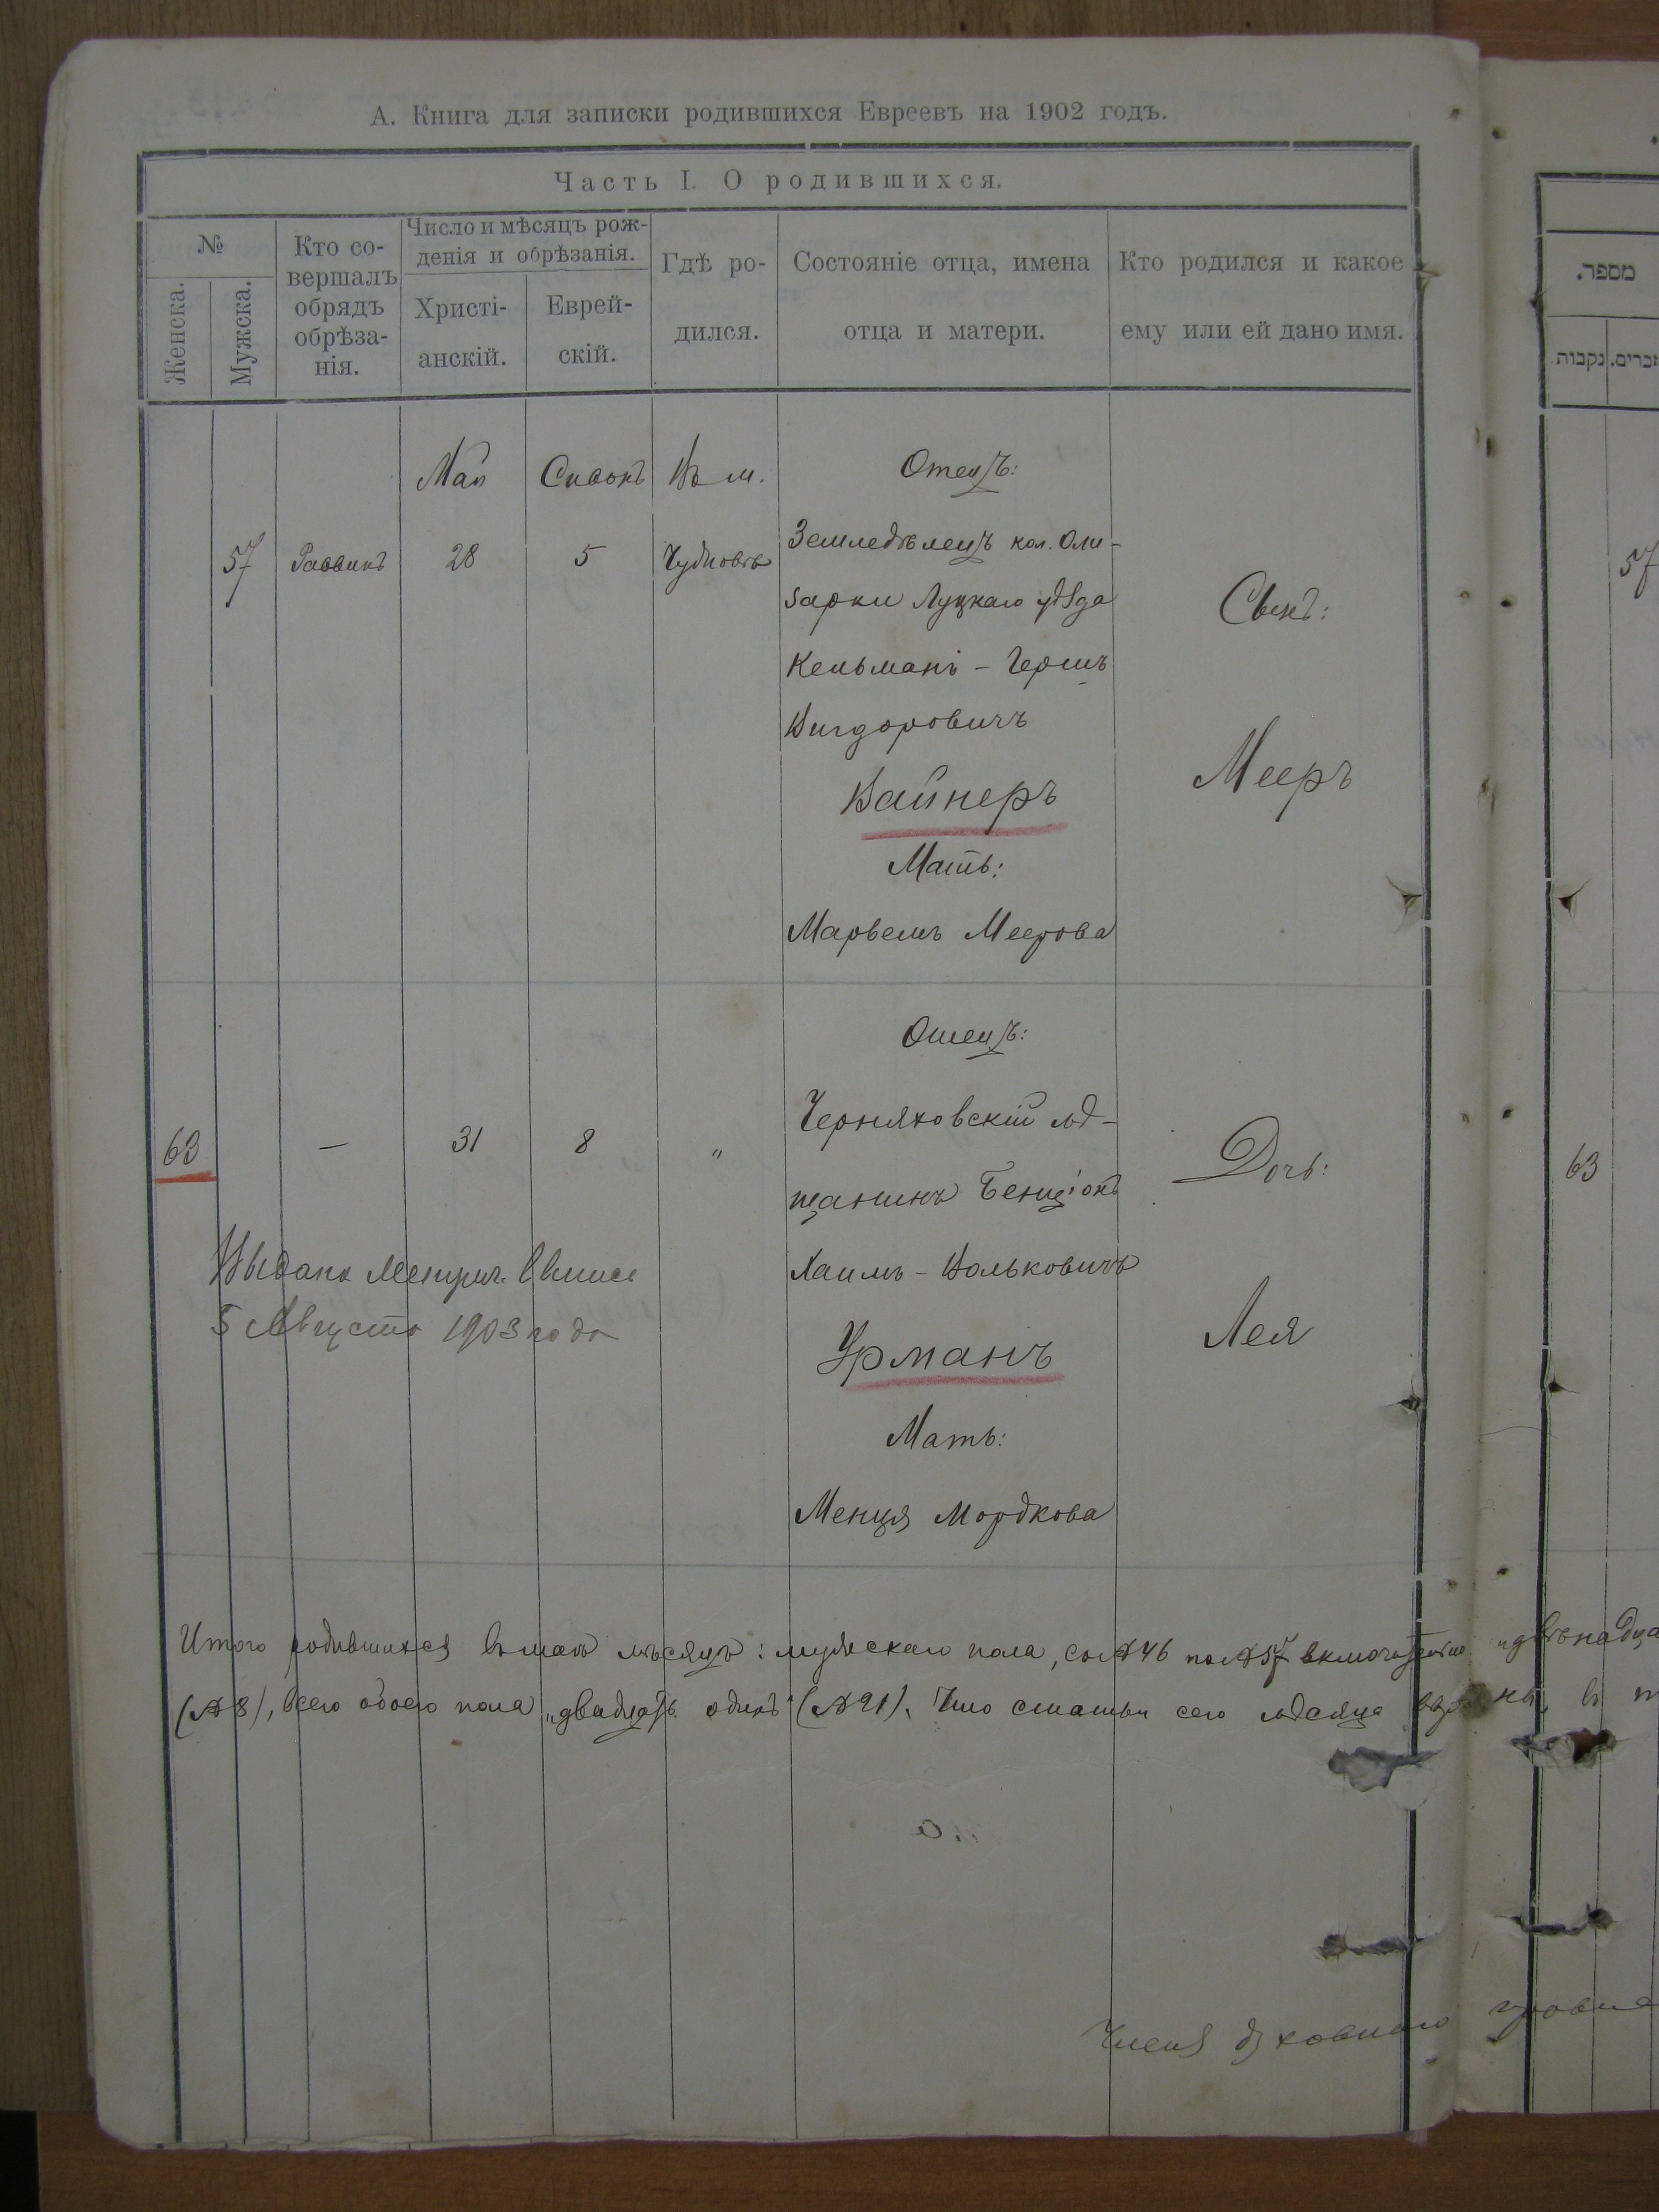 А. Книга для записки родившихся Евреевъ на 1902 годъ.
Часть I. О родившихся.
№
Женска.
Мужска.
Кто со-
вершалъ
обрядъ
обрѣза-
нія.
Число и мѣсяцъ рож-
денія и обрѣзанія.
Христі-
анскій.
Еврей-
скій.
Гдѣ ро-
дился.
Состояніе отца, имена
отца и матери.
Кто родился и какое
ему или ей дано имя.
Май
Сивонъ
Въ м.
57
Раввинъ
28
5
Чудновѣ
Отецъ:
Земледѣлецъ кол. Оли-
зарки Луцкаго уѣзда
Кельманъ - Гершъ
Вигдоровичъ
Вайнеръ
Мать:
Марьемъ Меерова
Сынъ:
Мееръ
63
—
31
8
"
Отецъ:
Черняховскій мѣ-
щанинъ Бенціонъ
Хаимъ - Вольковичъ
Урманъ
Мать:
Менця Мордкова
Дочь:
Лея
Выдана Метрич.
5 Августа 1903 года
Итого родившихся въ маѣ мѣсяцѣ: мужскаго пола, съ №46 по №57 включительно „двѣнадца
(№8), всего обоего пола „двадцать одинъ“ (№21). Что статьи сего мѣсяца въ
Члены духовнаго правле
מספר.
נקבות
זכרים.
57
63